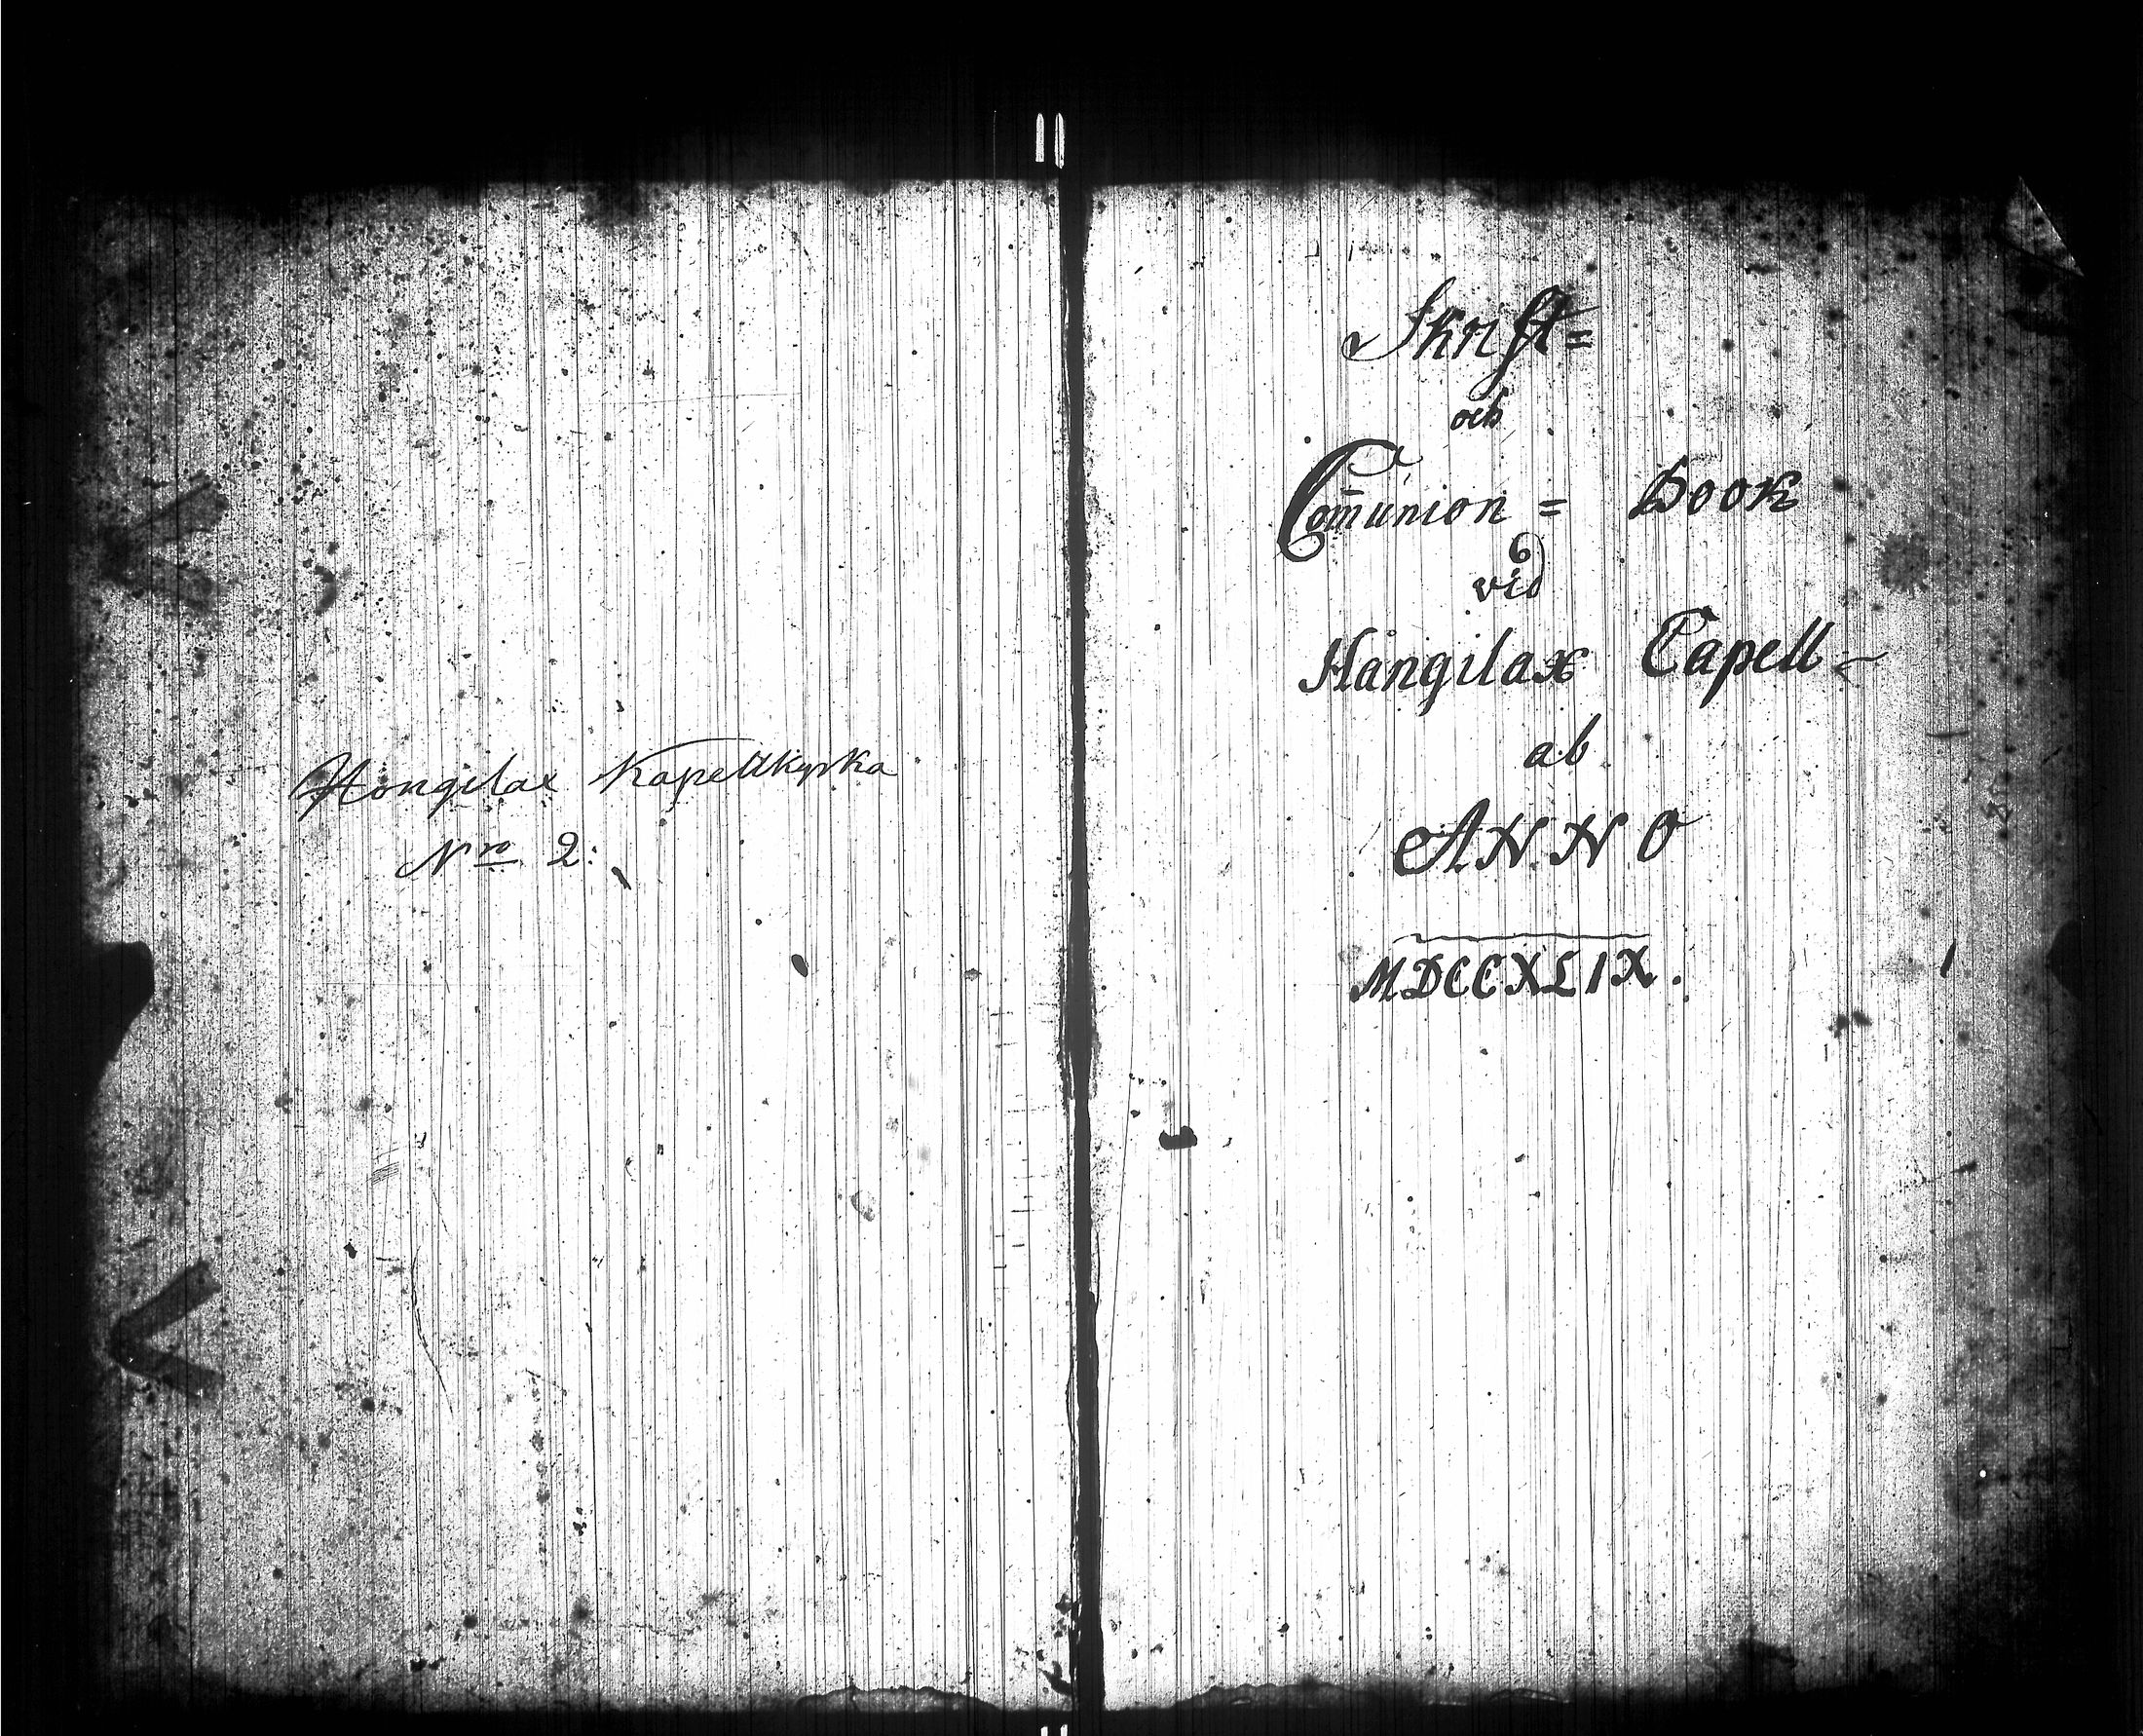 Hongilax Kapellkyrka
Nro 2:
Skrift=
och
Com̄union = Book
vid
Hångilax Capell
ab
ANNO
MDCCXLIX.